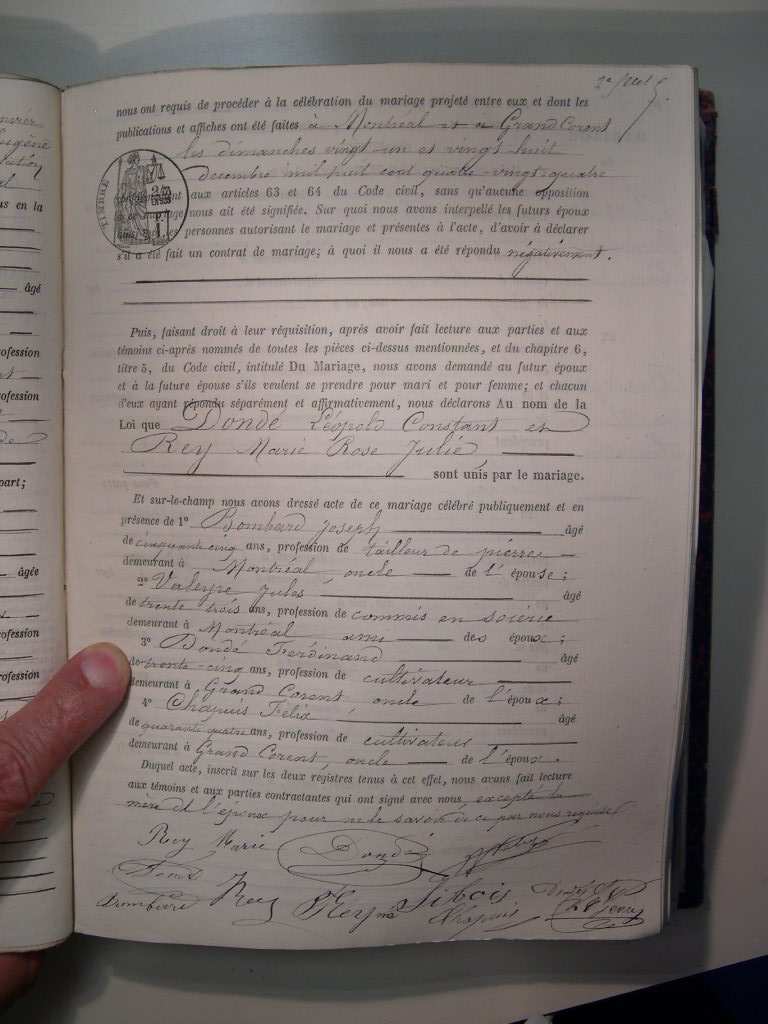 2e feuillet
nous ont requis de procéder à la célébration du mariage projeté entre eux et dont les
publications et affiches ont été faites à Montréal et à Grand Corent
les dimanches vingt-un et vingt huit
decembre mil huit cent quatre-vingt-quatre
TIMBRE
aux articles 63 et 64 du Code civil, sans qu'aucune opposition
nous ait été signifiée. Sur quoi nous avons interpellé les futurs époux
personnes autorisant le mariage et présentes à l'acte, d'avoir à déclarer
s'il a été fait un contrat de mariage; à quoi il nous a été répondu négativement.
Puis, faisant droit à leur réquisition, après avoir fait lecture aux parties et aux
témoins ci-après nommés de toutes les pièces ci-dessus mentionnées, et du chapitre 6,
titre 5, du Code civil, intitulé Du Mariage, nous avons demandé au futur époux
et à la future épouse s'ils veulent se prendre pour mari et pour femme; et chacun
d'eux ayant répondu séparément et affirmativement, nous déclarons Au nom de la
Loi que Dondé Léopold Constant et
Rey Marie Rose Julie,
sont unis par le mariage.
Et sur-le-champ nous avons dressé acte de ce mariage célébré publiquement et en
présence de 1° Bombard Joseph âgé
de cinquante cinq ans, profession de tailleur de pierre
demeurant à Montréal, oncle de l'épouse;
2° Valeyre Jules âgé
de trente trois ans, profession de commis en soierie
demeurant à Montréal ami des époux;
3° Dondé Ferdinand âgé
de trente-cinq ans, profession de cultivateur
demeurant à Grand Corent, oncle de l'époux;
4° Chapuis Félix, âgé
de quarante quatre ans, profession de cultivateur
demeurant à Grand Corent, oncle de l'époux.
Duquel acte, inscrit sur les deux registres tenus à cet effet, nous avons fait lecture
aux témoins et aux parties contractantes qui ont signé avec nous, excepté la
mère de l'époux pour ne le savoir de ce par nous requise
Rey Marie Dondé
Rey Rey Sibois
Chapuis